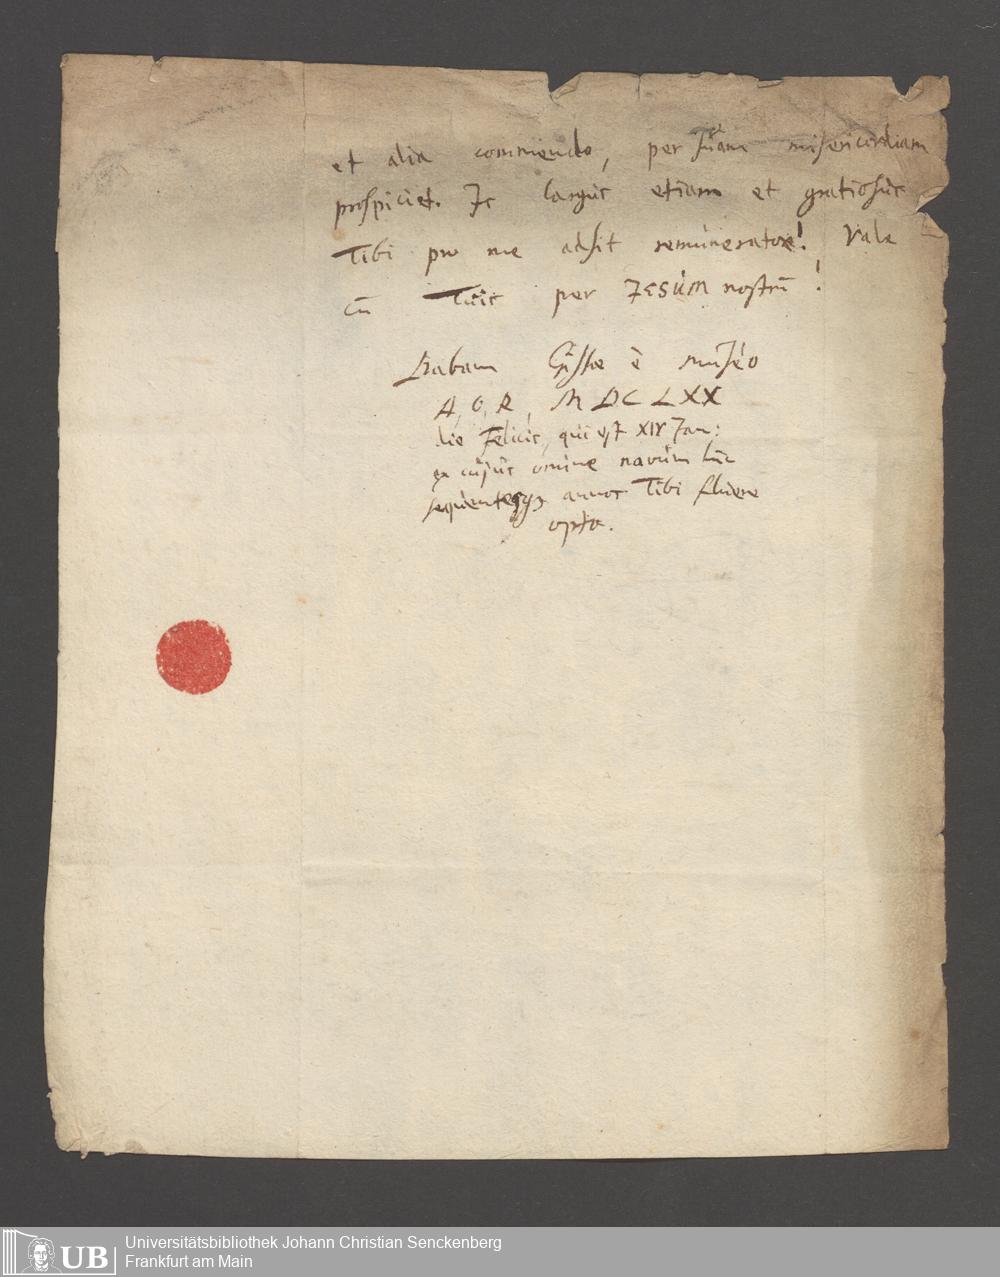 et alia commendo, per suam misericordiam
prospiciet. Is largus etiam et gratiosus
Tibi pro me adsit remunerator! Vale
cū Tuis per IESUM nostrū!
Dabam Gissæ è muséo
A, O, R, M DC LXX
die Felicis, qui est XIV Jan:
ex cujus omine novum hūc
sequentesqȝ annos Tibi fluere
opto.
UB
Universitätsbibliothek Johann Christian Senckenberg
Frankfurt am Main